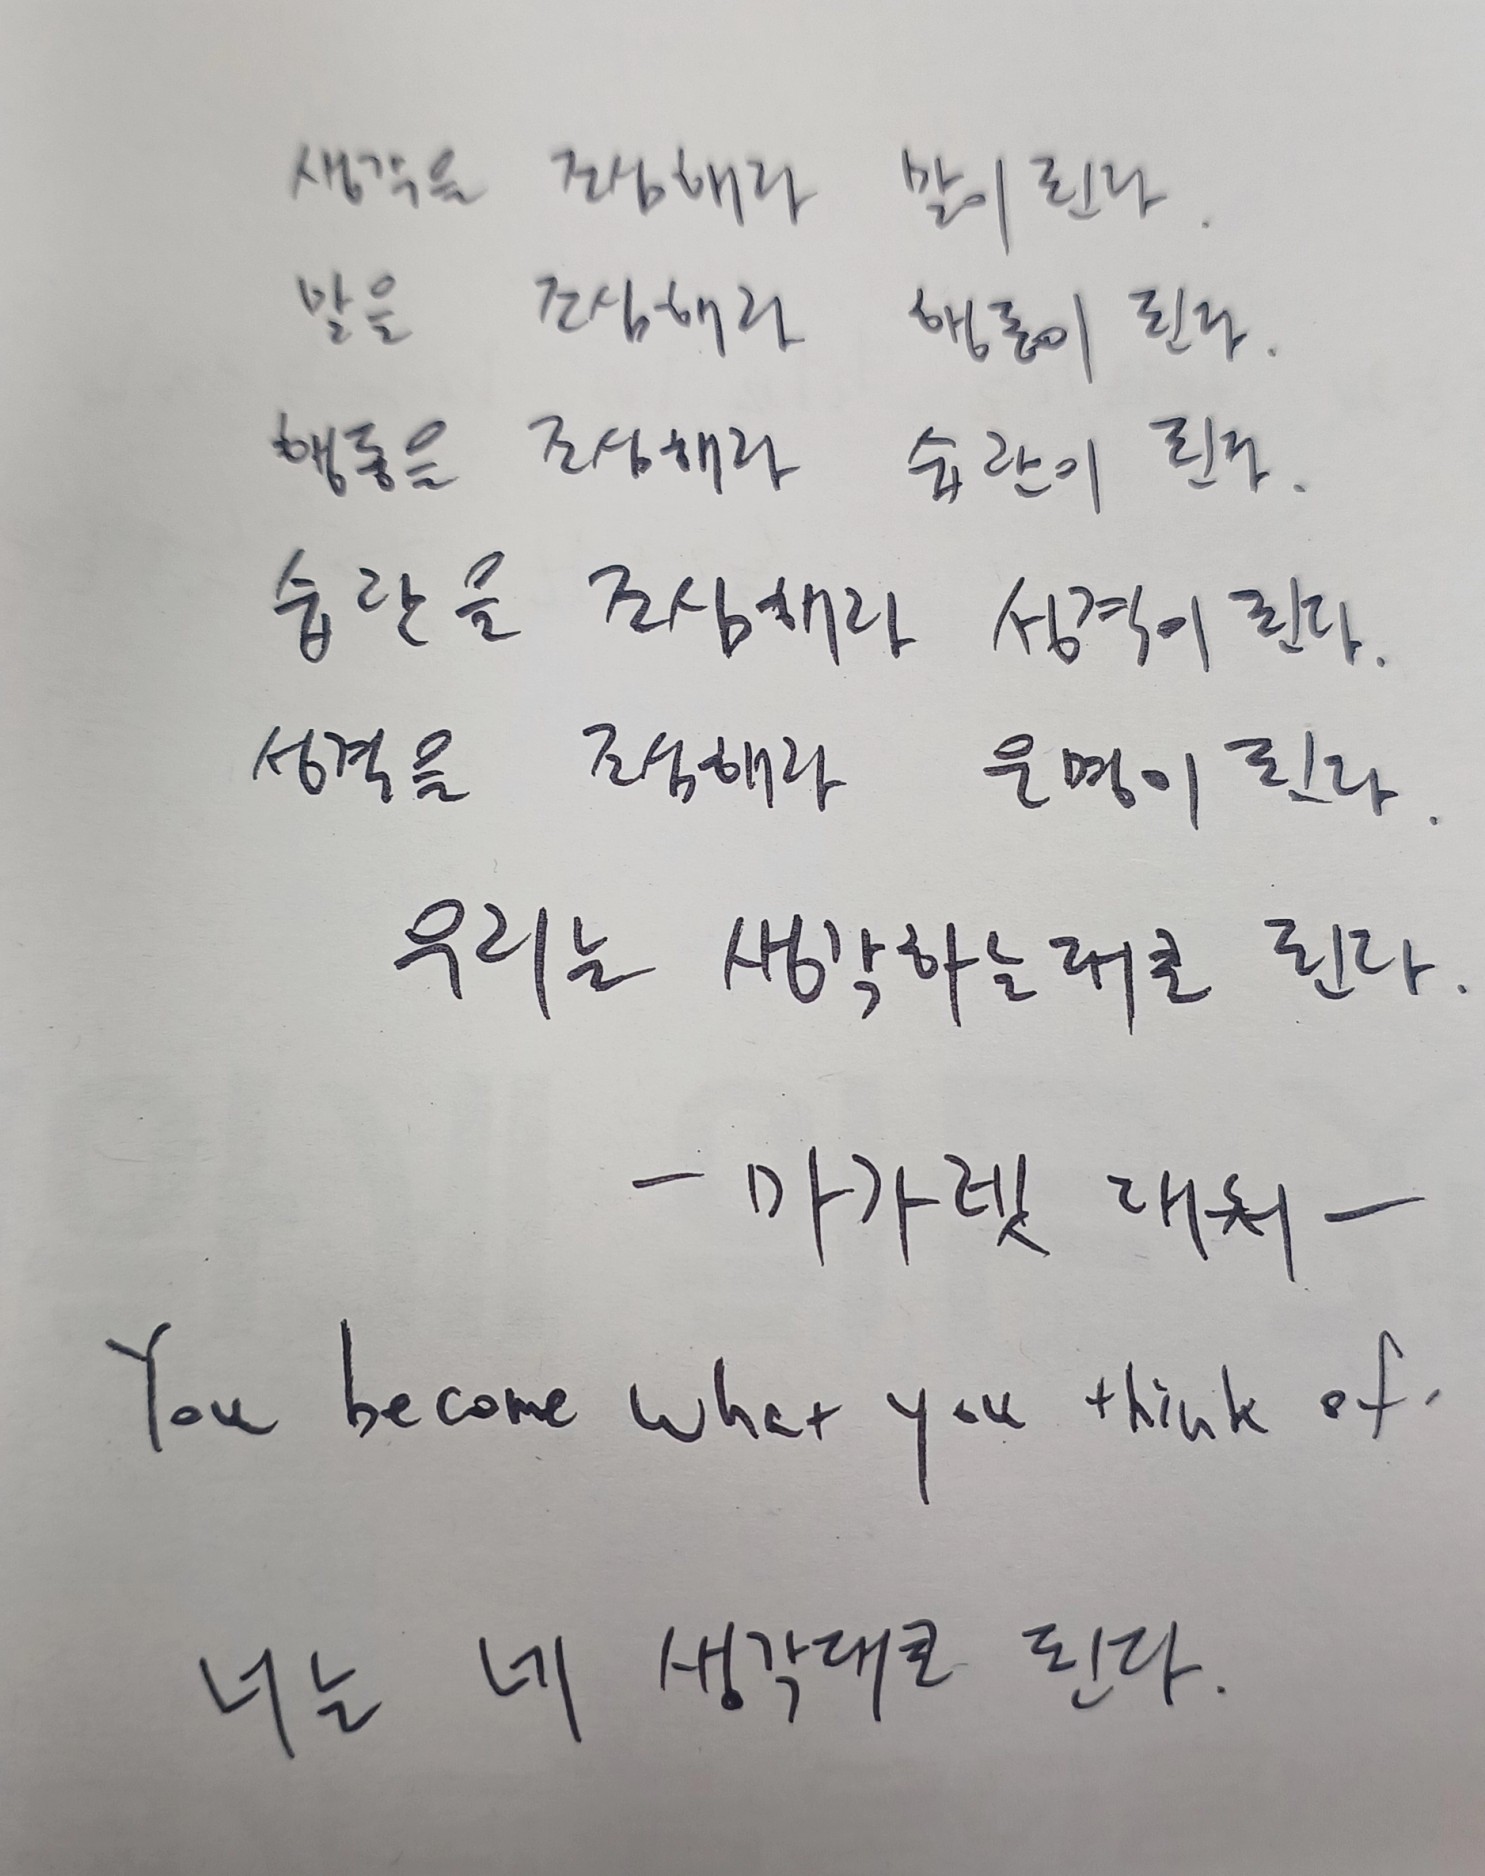 생각을 조심해라 말이 된다.
말을 조심해라 행동이 된다.
행동을 조심해라 습관이 된다.
습관을 조심해라 성격이 된다.
성격을 조심해라 운명이 된다.
우리는 생각하는대로 된다.
- 마가렛 대처 -
You become what you think of.
너는 네 생각대로 된다.